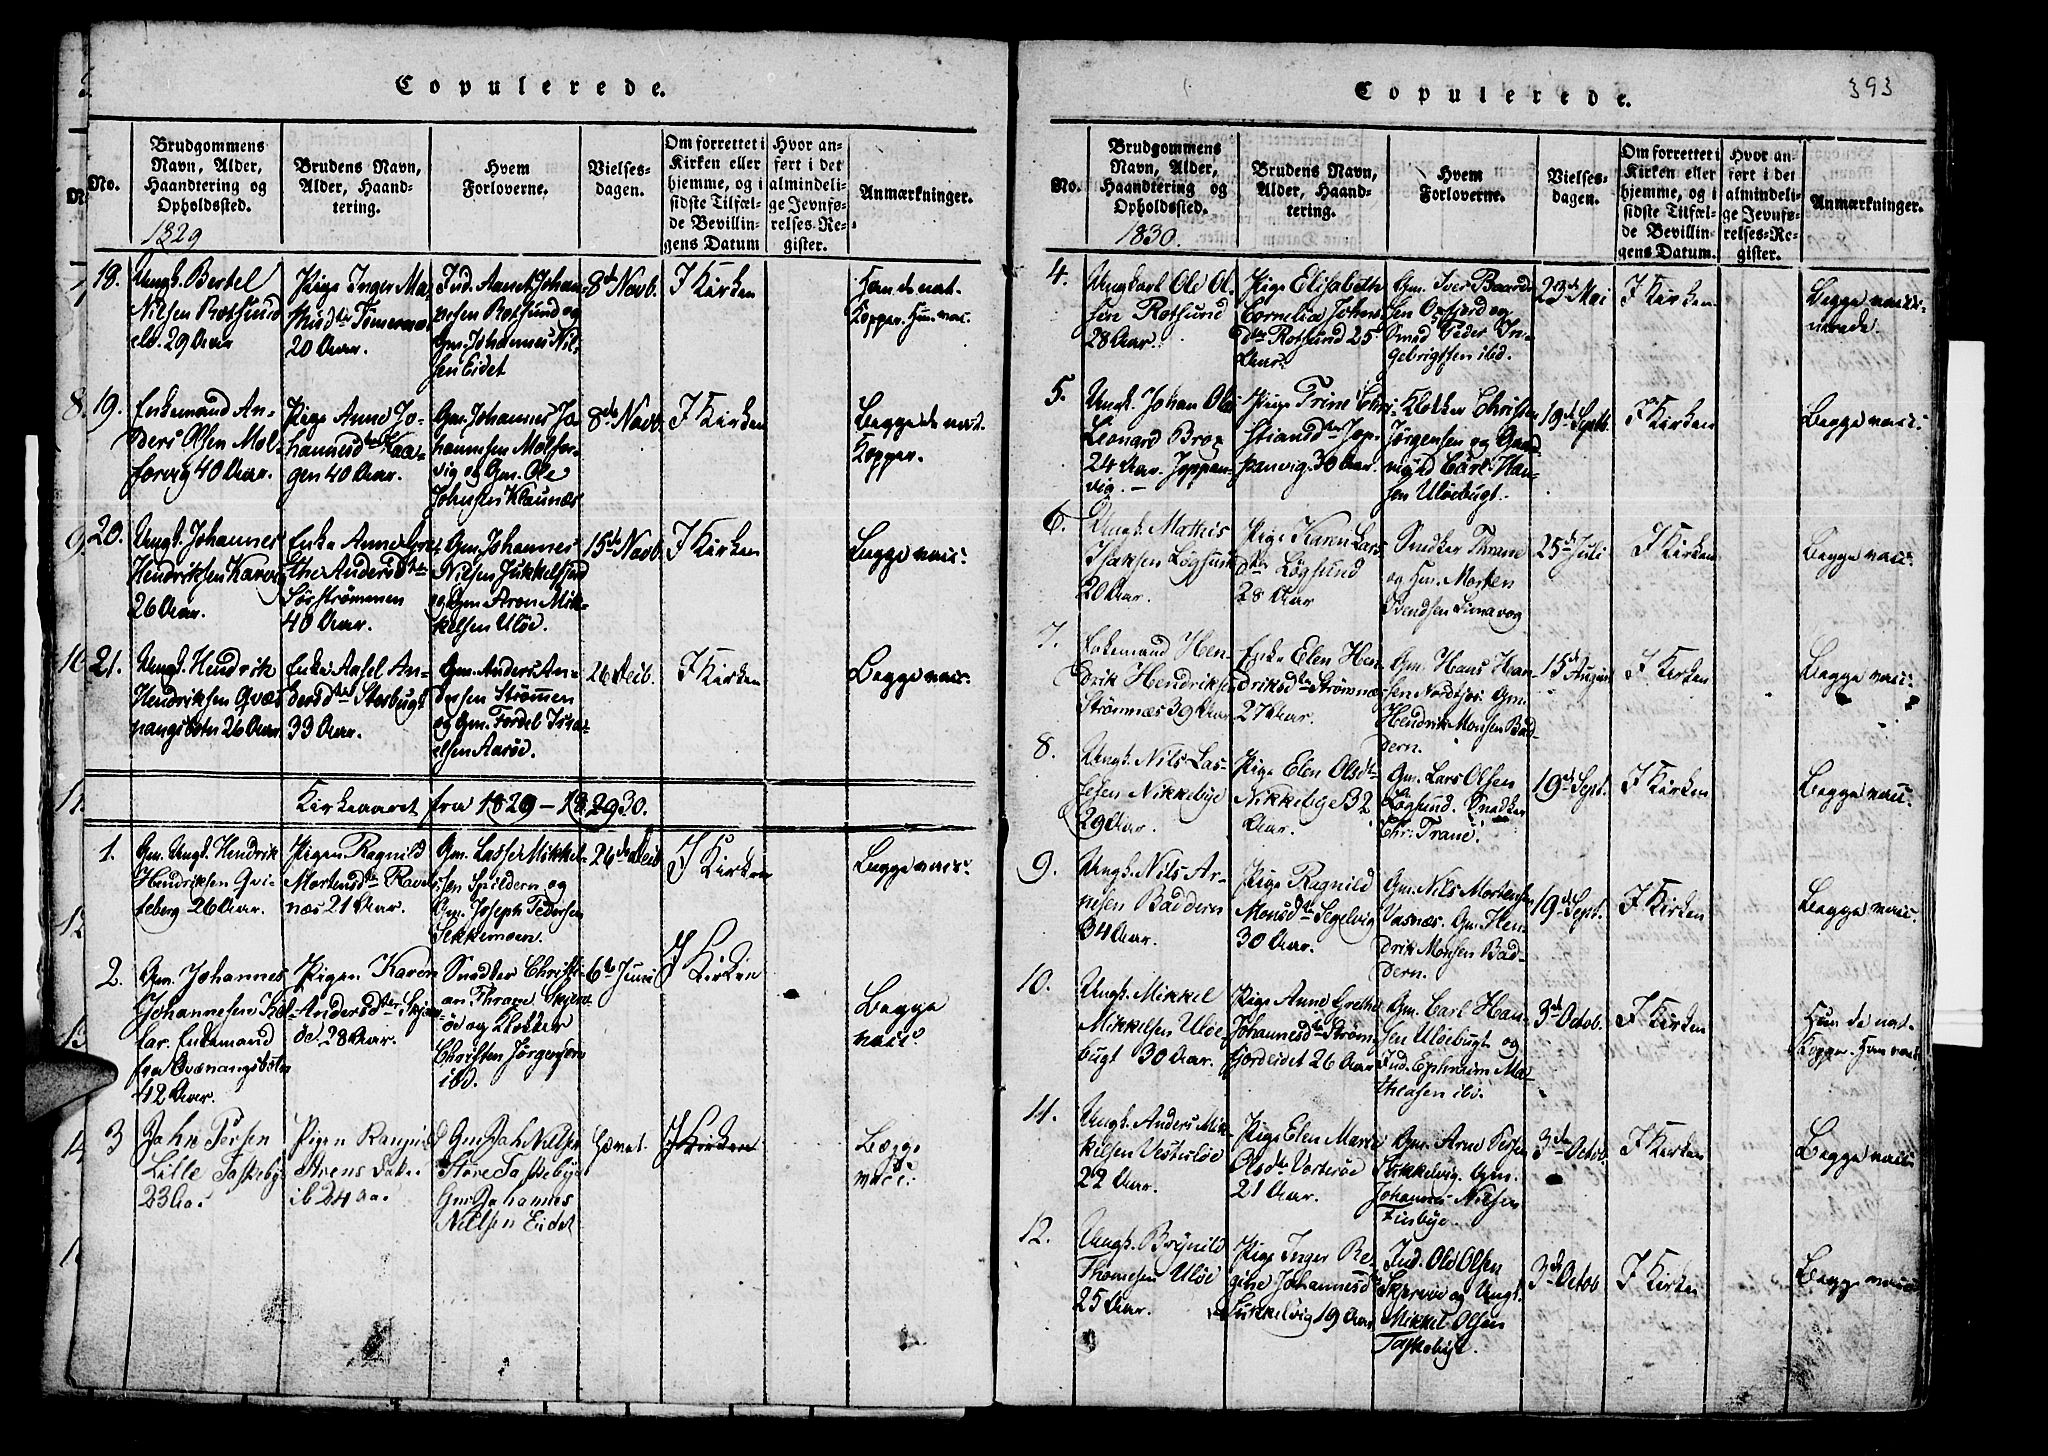 Copulerede.
No.
Brudgommens
Navn, Alder,
Haandtering og
Opholdssted.
1829
Brudens Navn,
Alder, Haand-
tering.
Hvem
Forloverne.
Vielses-
dagen.
Om forrettet i
Kirken eller
hjemme, og i
sidste Tilfæl-
de Bevillin-
gens Datum
Hvor an-
ført i det
almindeli-
ge Jevnfø-
relses-Re-
gister.
Anmærkninger.
18.
Ungk. Bertel
Nilsen Rotsund
29 Aar
Pige Inger Ma-
20 Aar.
Ind. Arnet Johan-
nesen Rotsund og
Gm. Johannes Nil-
sen Eidet
8de Novb.
I Kirken
Ham de nat.
Kopper. Hun vacc.
19.
Enkemand An-
ders Olsen Mol-
forvig 40 Aar.
Pige Anne Jo-
hannesdtr Kaa-
gen 40 Aar.
Gm. Johannes Jo-
hannesen Molfor-
vig og Gm. Ole
Johnsen Klaunæs
8de Novb.
I Kirken
Begge de nat.
Kopper.
20.
Ungk. Johannes
Hendriksen Karvig
26 Aar.
Enke Anne Gre-
the Andersdtr
Sørstrømmen
40 Aar.
Gm. Johannes
Nilsen Jukkelfjord
og Gm. Aron Mik-
kelsen Uløe.
15de Novb.
I Kirken
Begge vacc:
21.
Ungk. Hendrik
Hendriksen Qvæ-
nangsbotn 26 Aar
Enke Axsel An-
dersdtr Storbugt
33 Aar.
Gm. Anders An-
dersen Strømmen
og Gm. Fordel Isra-
elsen Aarøe.
26 Decb.
I Kirken
Begge vacc.
Kirkeaaret fra 1829 - 1830.
1.
Gm. Ungk. Hendrik
Hendriksen Qvi-
teberg 26 Aar.
Pigen Ragnild
Mortensdtr Ravel-
næs 21 Aar.
Gm. Lasse Mikkel-
sen Spildern og
Gm. Joseph Pedersen
Sekkemoen.
26de Decb
I Kirken
Begge vacc.
2.
Gm. Johannes
Johannesen Kol-
lar. Enkemand
fra Qvænangsbotn
42 Aar.
Pigen Karen
Andersdtr Skjer-
øe 28 Aar.
Snedker Christi-
an Thrane Skjerv-
øe og Klokker
Christen Jørgensen
ibd.
6te Juni
I Kirken
Begge
vacc:
3
John Persen
Lille Taskebye
23 Aa.
Pigen Rangnild
Arens dater
ib 24 aa.
Gm Joh Nilsen
Store Taskebye
Gm Johannes
Nilsen Eidet
I Kirken
Begge
vacc:
Copulerede.
393
No.
Brudgommens
Navn, Alder,
Haandtering og
Opholdssted.
1830.
Brudens Navn,
Alder, Haand-
tering.
Hvem
Forloverne.
Vielses-
dagen.
Om forrettet i
Kirken eller
hjemme, og i
sidste Tilfæl-
de Bevillin-
gens Datum.
Hvor an-
ført i det
almindeli-
ge Jevnfø-
relses-Re-
gister.
Anmærkninger.
4.
Ungkarl Ole Ol-
sen Rotsund
28 Aar.
Pige Elisabeth
Cornelia Johns-
dtr Rotsund 25
Aar.
Gm. Iver Baard-
sen Oxfjord og
Smed Peder In-
gebrigtsen ibid.
23de Mai
I Kirken
Begge vacci-
nerede.
5.
Ungk. Johan Ole
Leonard Brox
24 Aar. Joppan-
vig. —
Pige Trine Chri-
stiansdtr Jop-
panvig. 30 Aar.
Klokker Christen
Jørgensen og Gaard-
mand Carl Han-
sen Uløebugt.
19de Septb.
I Kirken
Begge vacc:
6.
Ungk. Mathis
Isaksen Løgsund
20 Aar.
Pige Karen Lars-
dtr Løgsund
28 Aar
Snedker Thrane
og Hm. Morten
25de Juli
I Kirken
Begge vacc:
7.
Enkemand Hen-
drik Hendriksen
Strømnæs 39 Aar
Enke Elen Hen-
driksdtr Strømnæs
27 Aar.
Gm. Hans Han-
sen Gm.
Hendrik Monsen Bad-
dern.
15de August
I Kirken
Begge vacc:
8.
Ungk. Nils Las-
sesen Nikkebye
29 Aar.
Pige Elen Olsdtr
Nikkebye 32
Aar.
Gm. Lars Olsen
Løgsund. Snedker
Chr. Trane.
19de Sept.
I Kirken
Begge vacc.
9.
Ungk. Nils Ar-
nesen Baddern
34 Aar.
Pige Ragnild
Monsdtr Segelvig
30 Aar.
Gm. Nils Mortensen
Vasnæs. Gm. Hen-
drik Monsen Bad-
dern.
19de Sept.
I Kirken
Begge vacc.
10.
Ungk. Mikkel
Mikkelsen Uløe-
bugt 30 Aar.
Pige Anne Grethe
Johannesdtr Strøm-
fjordeidet 26 Aar
Gm. Carl Han-
sen Uløebugt og
Ind. Ephraim Ma-
theasen ibd.
3de Octob.
I Kirken
Hun de nat.
Kopper. Ham vacc.
11.
Ungk. Anders Mik-
kelsen Vesterløe
22 Aar.
Pige Elen Marie
Olsdtr Vorterøe
21 Aar.
Gm. Arne Persen
Sukkelvig. Gm.
Johannes Nilsen
Finbye.
3de Octob.
I Kirken
Begge vacc:
12.
Ungk. Brynild
Thomesen Uløe
25 Aar.
Pige Inger Re-
gine Johannesdtr
Sukkelvig 19 Aar
Ind. Ole Olsen
Skjervøe og Ungk.
Mikkel Olsen
Taskebye.
3de Octob
I Kirken
Begge vacc